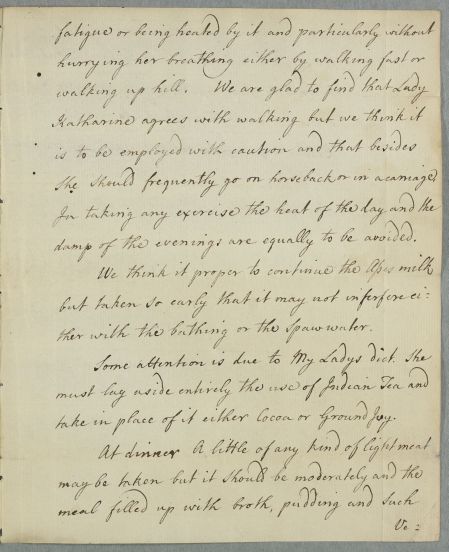 fatigue or being heated by it and particularly without
hurrying her breathing either by walking fast or
walking up hill. We are glad to find that Lady
Katharine agrees with walking but we think it
is to be employed with caution and that besides
she should frequently go on horseback or in a carriage.
In taking any exercise the heat of the day and the
damp of the evenings are equally to be avoided.
We think it proper to continue the Asses milk
but taken so early that it may not interfere ei=
ther with the bathing or the Spaw water.
Some attention is due to My Ladys diet. She
must lay aside entirely the use of Indian Tea and
take in place of it either Cocoa or Ground Ivy.
At dinner A little of any kind of light meat
may be taken but it should be moderately and the
meal filled up with broth, pudding and such
Ve=